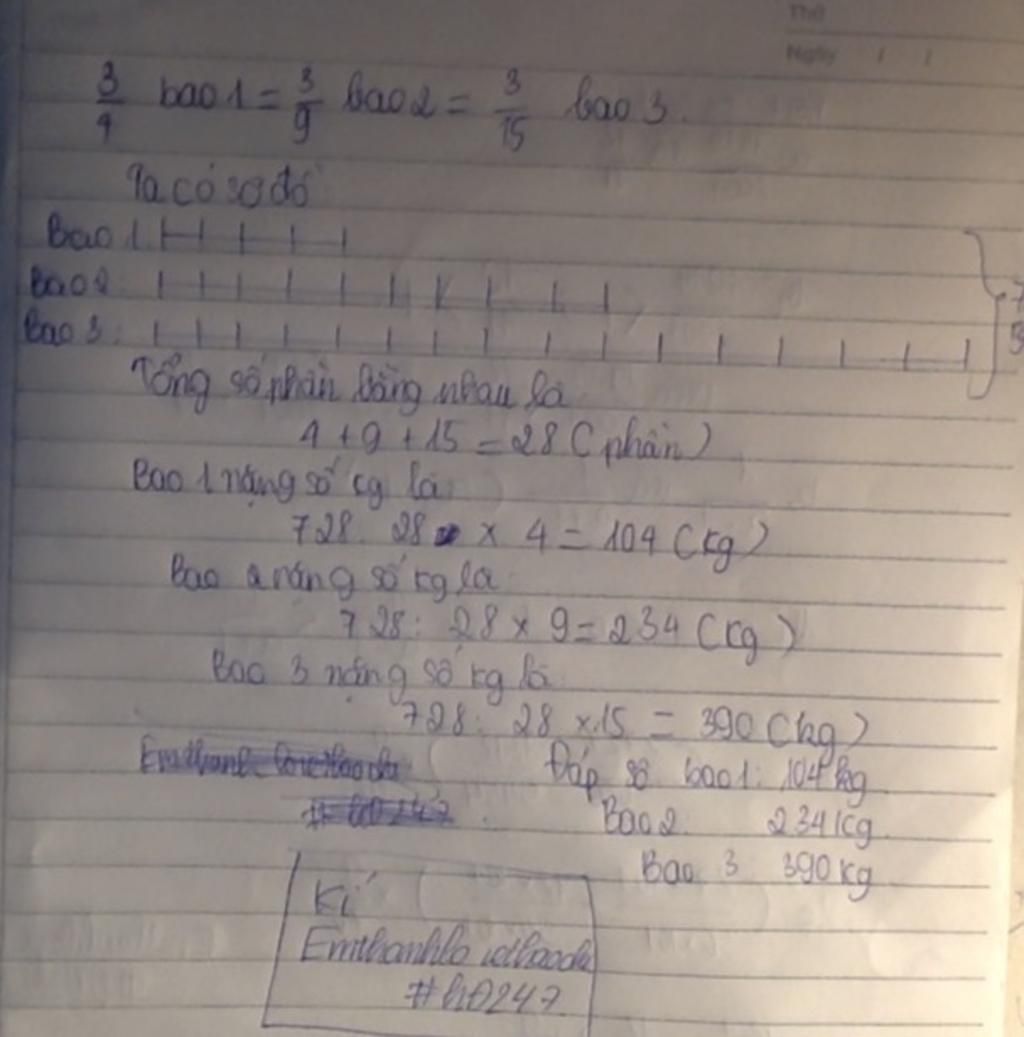 Thứ
Ngày / /
3/4 bao 1 = 3/9 bao 2 = 3/15 bao 3.
Ta có sơ đồ
Bao 1
Bao 2:
Bao 3:
7
Tổng số phần bằng nhau là
4 + 9 + 15 = 28 (phần)
Bao 1 nặng số kg là
728: 28 x 4 = 104 (kg)
Bao 2 nặng số kg là
728: 28 x 9 = 234 (kg)
Bao 3 nặng số kg là
728: 28 x 15 = 390 (kg)
Đáp số bao 1: 104 kg
#h0247
Bao 2 234 kg
Bao 3 390 kg
Kí
#h0247